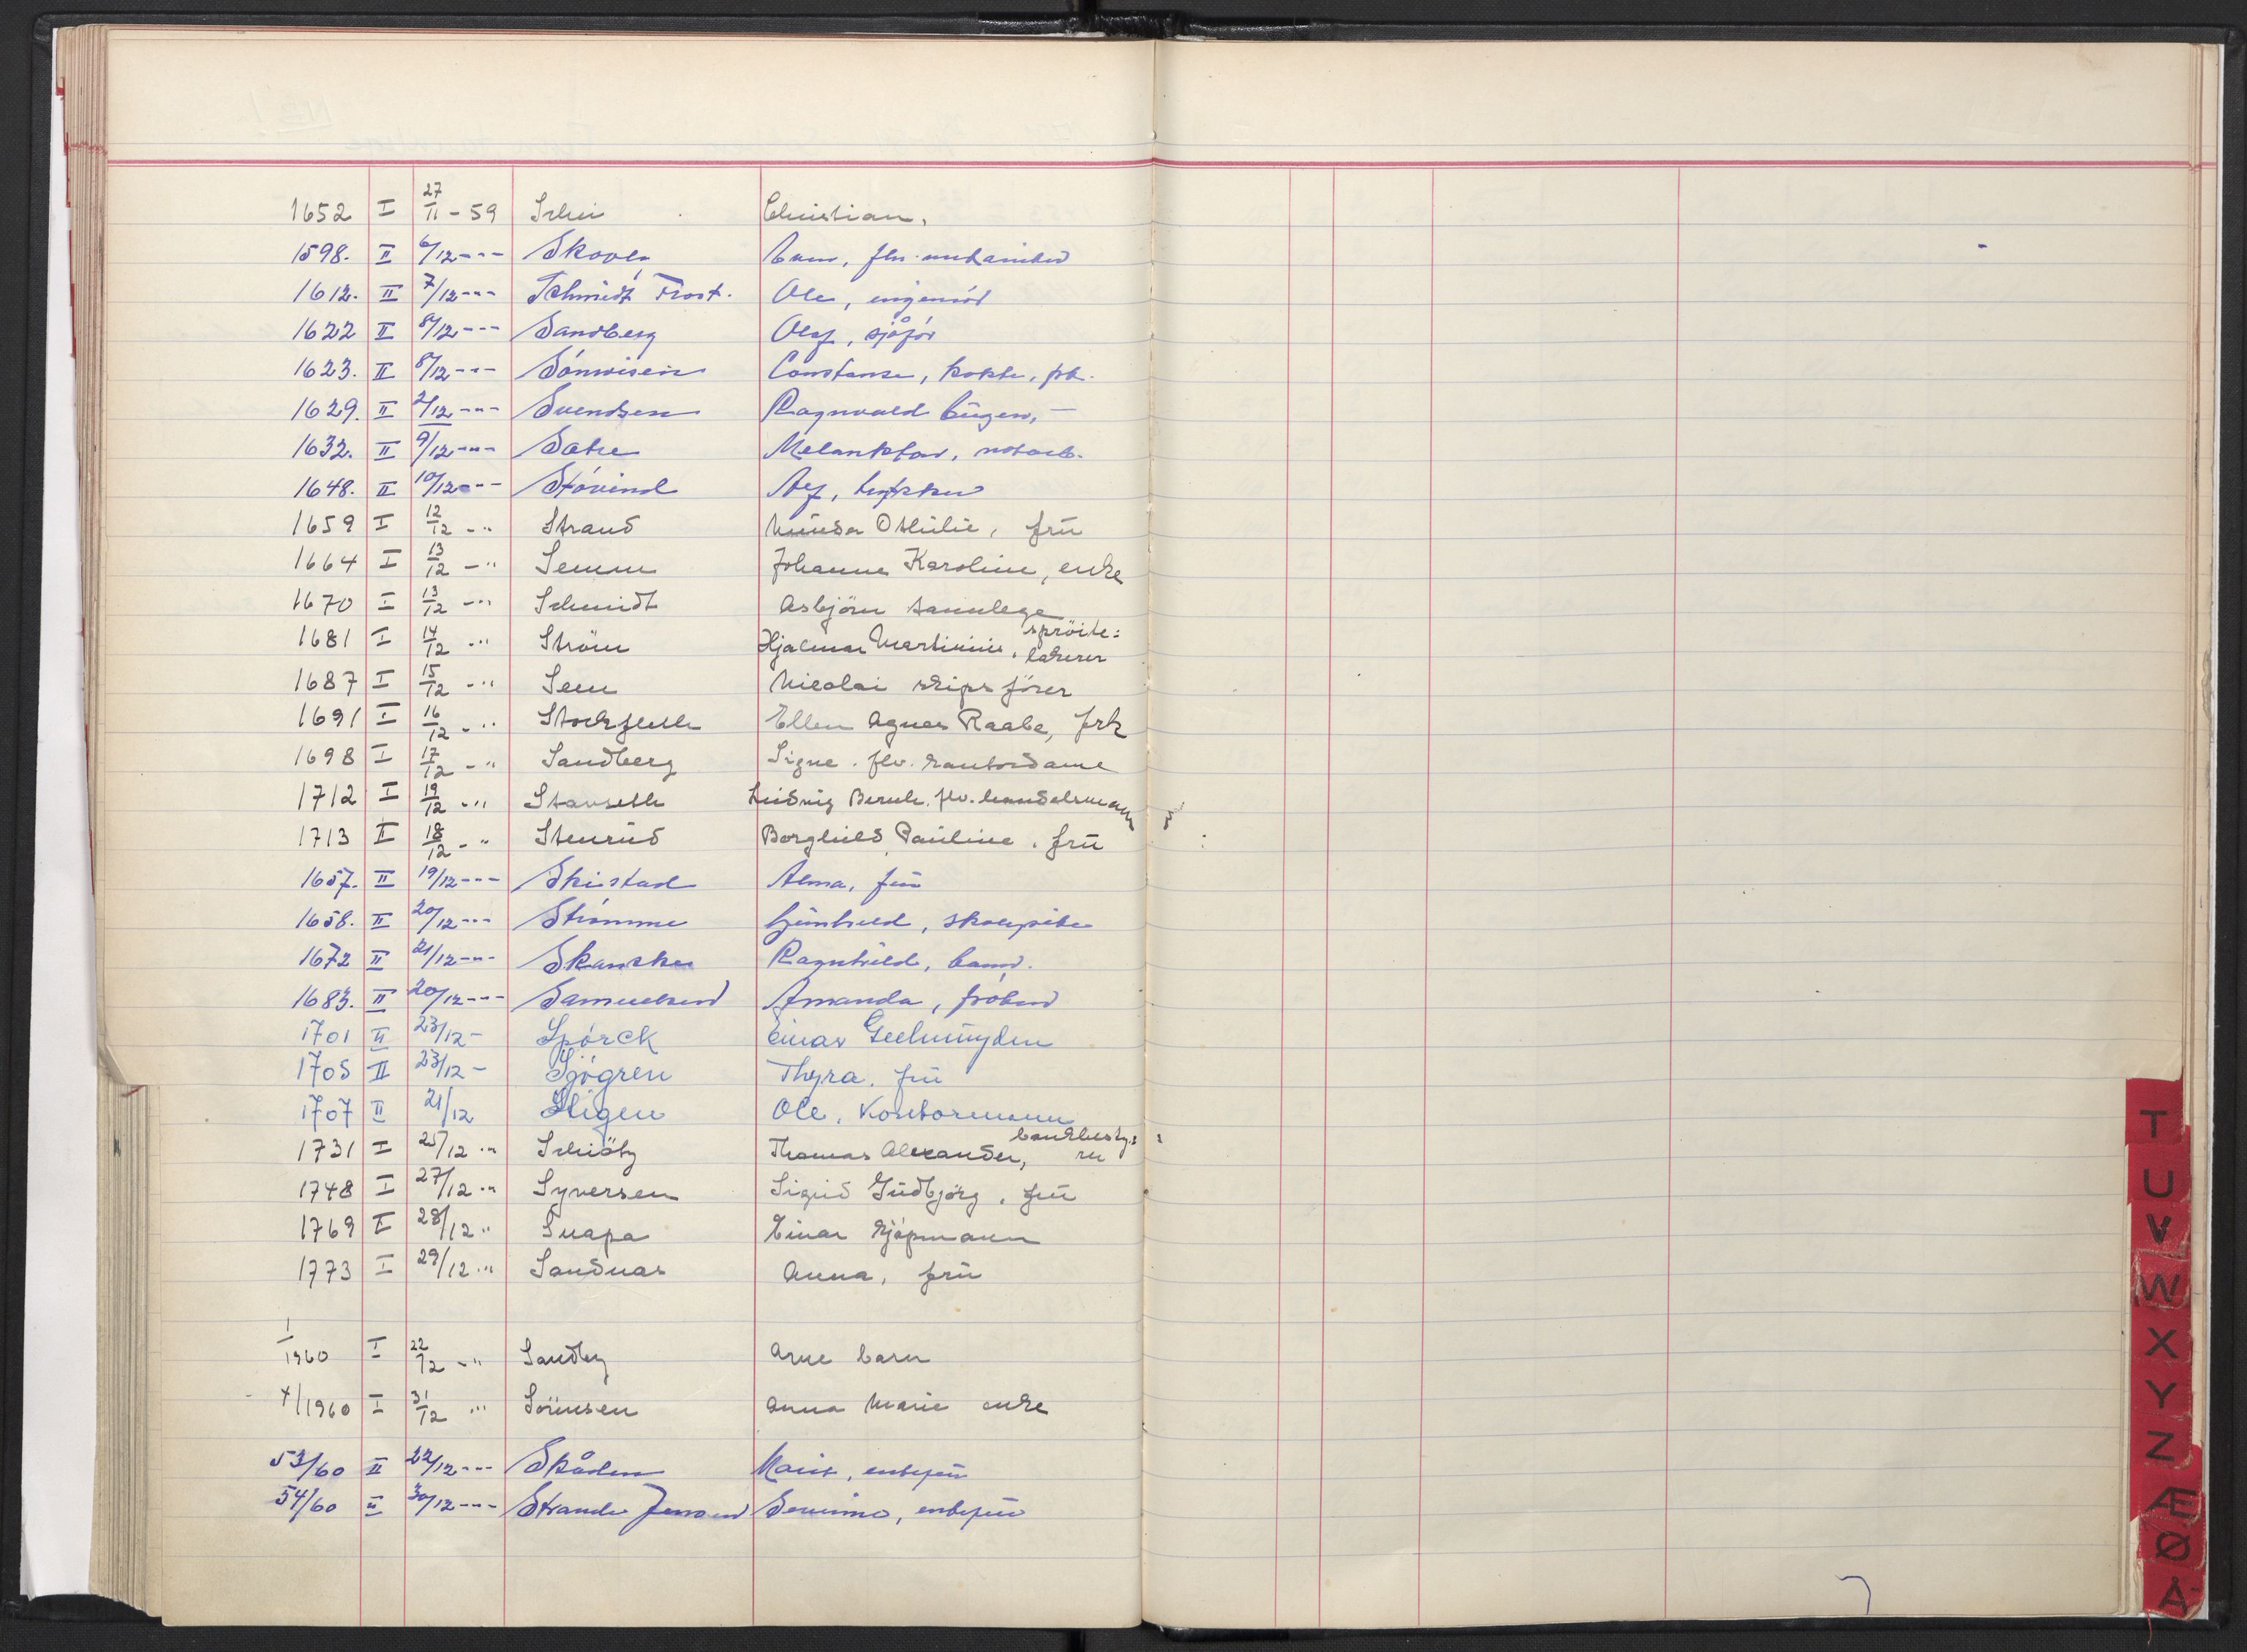 1652 I 27/11 - 59 Schei Christian,
1598. II 6/12 - " - Skoven
1612. II 7/12 - " - Schmidt Frost. Ole, ingeniör
1622 II 8/12 - " - Sandberg Olaf, sjåför
1623. II 8/12 - " - Constanse, kokke, frk.
1629. II 2/12 - " - Svendsen Ragnvald Eugen, -
1632. II 9/12 - " - Satre notarb.
1648. II 10/12 - " - Stövind Alf,
1659 I 12/12 - " Strand Ottilie, frü
1664 I 13/12 - " Semm Johanne Karoline, enke
1670 I 13/12 - " Schmidt Asbjörn tannlege
1681 I 14/12 - " Ström Hjalmar Martinius, spröite:
lakerer
1687 I 15/12 - " Sem Nicolai skipsförer
1691 I 16/12 - " Stockfleth Ellen Agnes Raabe, frk
1698 I 17/12 - " Sandberg Signe. flv. kontordame
1712 I 19/12 - " Stavseth Ludvig Bernh. flv. handelsmann
1713 I 18/12 - " Stenrud Borghild Pauline, frü
1657. II 19/12 - " - Skistad Alma, frü
1658. II 20/12 - " - Strömme Gunhild, skolepike
1672 II 21/12 - " - Skancke Ragnhild, barn.
1683. II 20/12 - " - Samuelsen Amanda, fröken
1701 II 23/12 - Spörck Einar Geelmuyden
1705 II 23/12 - Sjögren Thyra. frü
1707 II 21/12 Stigen Ole, Kontormann
1731 I 25/12 - " Schiötz Thomas Alexander, bankbesty:
rer
1748 I 27/12 - " Syversen Sigrid Gudbjörg, frü
1769 I 28/12 " Snapa Einar kjöpmann
1773 I 29/12 - " Sandnas Anna, frü
1/1960 I 22/12 - " Sandberg Arne barn
4/1960 I 31/12 " Sörensen Anna Marie enke
53/60 II 22/12 - " - Skåden Marit, enkefrü
54/60 II 30/12 - " - Strande Jensen enkefrü
T
U
V
W
X
Y
Z
Æ
Ø
Å